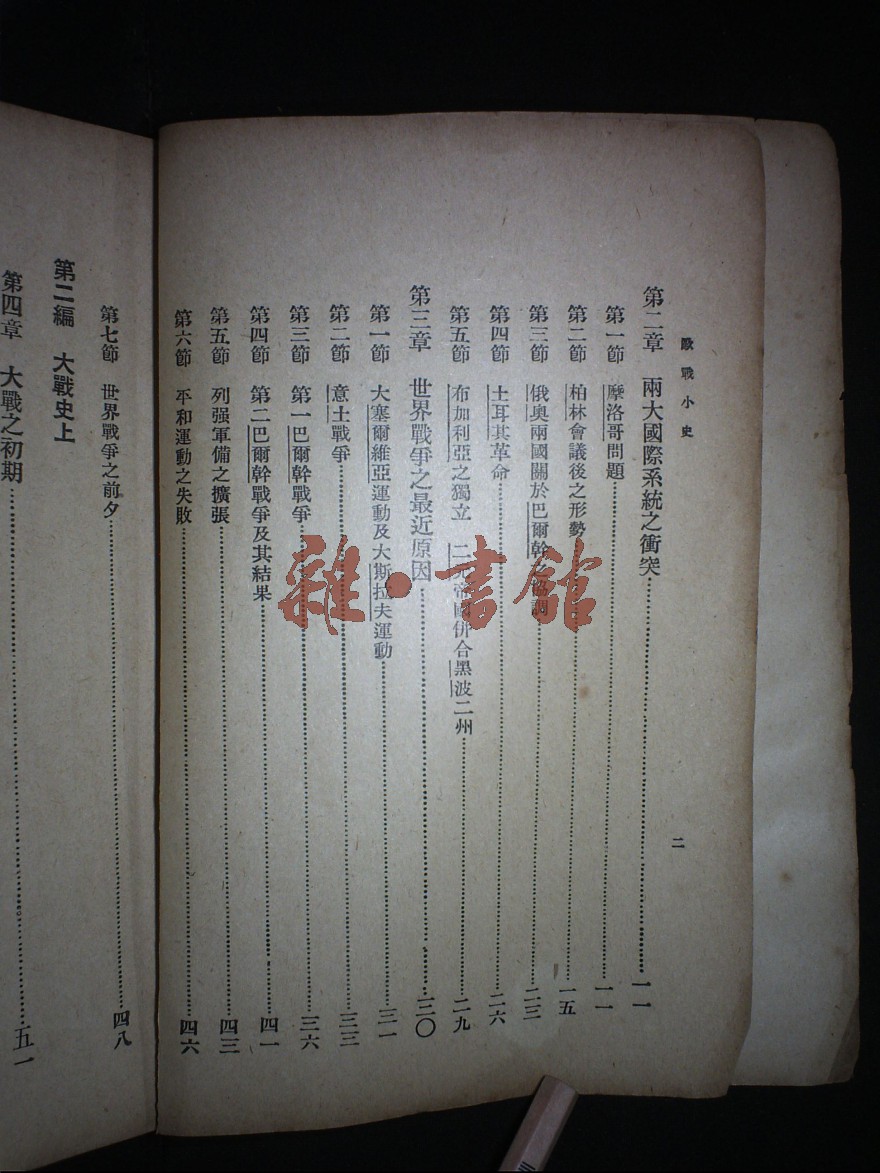 歐戰小史
二
第二章　兩大國際系統之衝突…………一一
第一節　摩洛哥問題…………一一
第二節　柏林會議後之形勢…………一五
第三節　俄奧兩國關於巴爾幹之協調…………二三
第四節　土耳其革命…………二六
第五節　布加利亞之獨立　二元帝國併合黑波二州…………二九
第三章　世界戰爭之最近原因…………三〇
第一節　大塞爾維亞運動及大斯拉夫運動…………三一
第二節　意土戰爭…………三三
第三節　第一巴爾幹戰爭…………三六
第四節　第二巴爾幹戰爭及其結果…………四一
第五節　列强軍備之擴張…………四三
第六節　平和運動之失敗…………四六
第七節　世界戰爭之前夕…………四八
第二編　大戰史上
第四章　大戰之初期…………五一
雜·書館